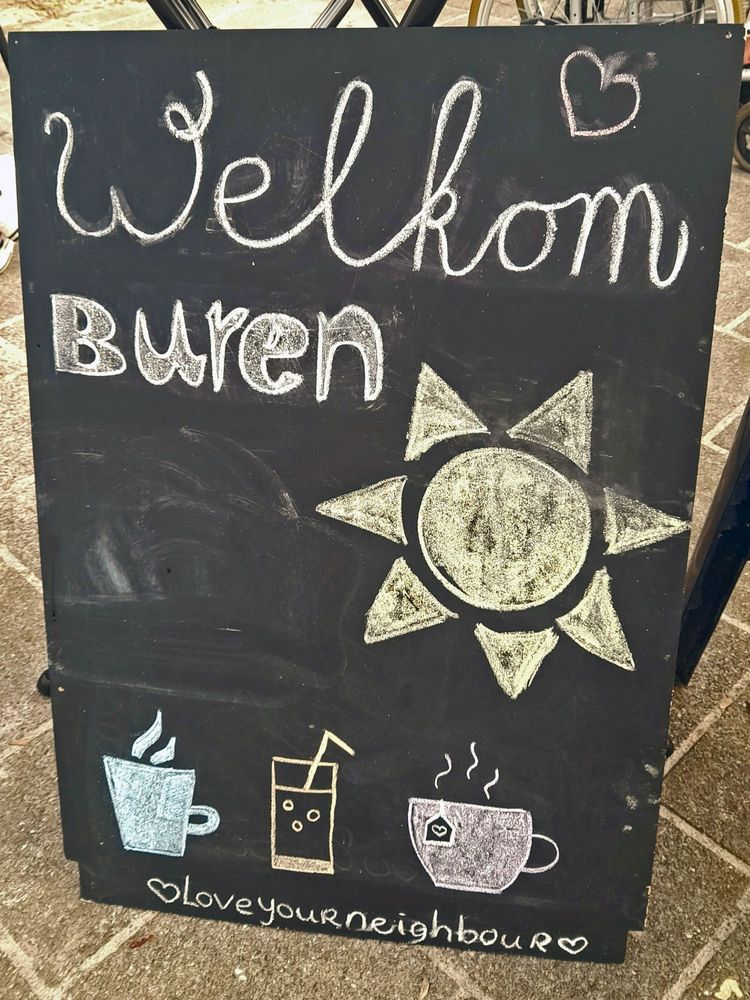 Welkom
Buren
Love your neighbour